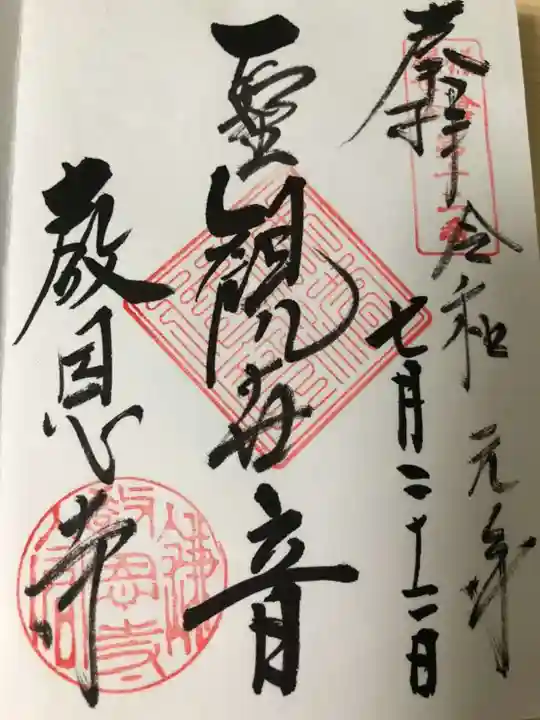 奉拝 令和元年
七月二十二日
聖観世音
教恩寺